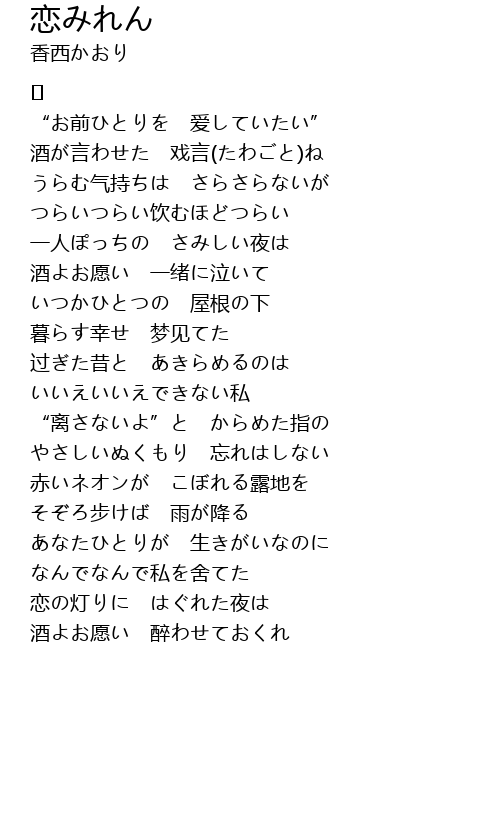 恋みれん
香西かおり
[]
“お前ひとりを　爱していたい”
酒が言わせた　戏言(たわごと)ね
うらむ气持ちは　さらさらないが
つらいつらい饮むほどつらい
一人ぽっちの　さみしい夜は
酒よお愿い　一绪に泣いて
いつかひとつの　屋根の下
暮らす幸せ　梦见てた
过ぎた昔と　あきらめるのは
いいえいいえできない私
“离さないよ”と　からめた指の
やさしいぬくもり　忘れはしない
赤いネオンが　こぼれる露地を
そぞろ步けば　雨が降る
あなたひとりが　生きがいなのに
なんでなんで私を舍てた
恋の灯りに　はぐれた夜は
酒よお愿い　醉わせておくれ